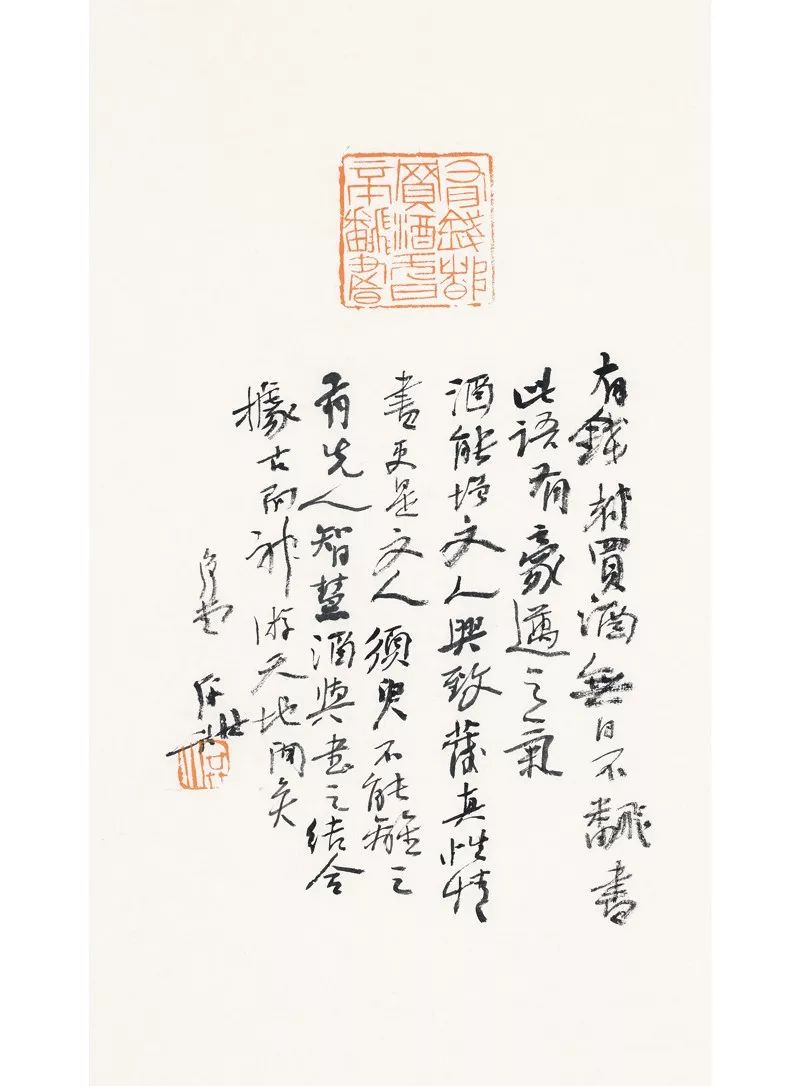 有錢都
買酒无日
不飜書
有錢都買酒無日不飜書
此語有豪邁之氣
酒能增文人興致發真性情
書更是文人須臾不能離之
有先人智慧酒與書之結合
據古而神游天地間矣